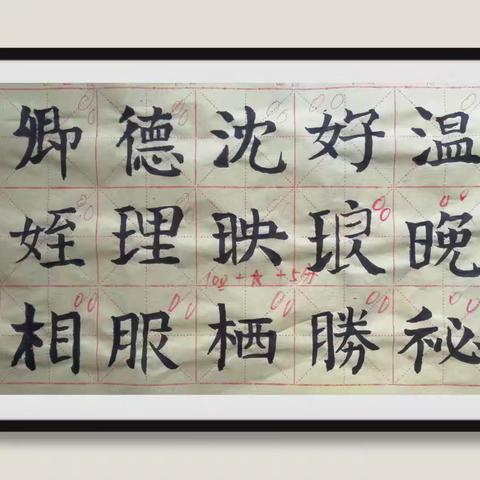 卿德沈好温
姪理映琅晚
100+★+5分
相服栖勝祕